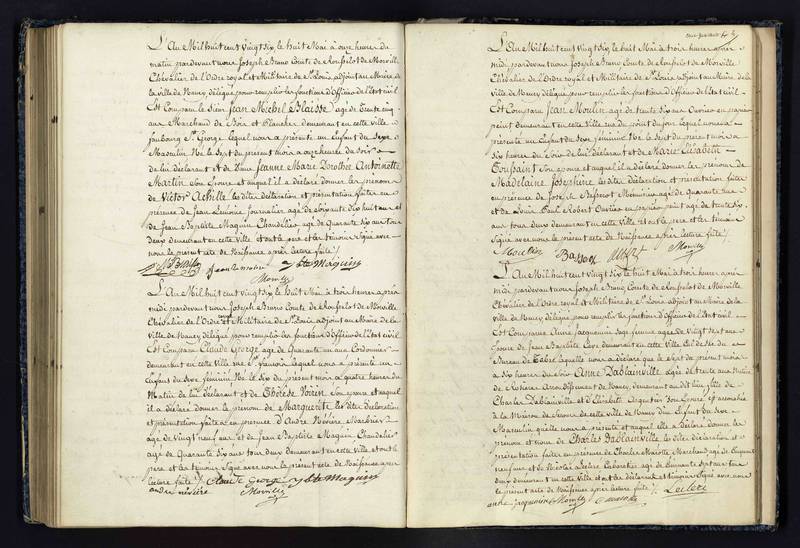 L'An Mil huit cent vingt six, le huit Mai à onze heures du
matin pardevant nous Joseph Bruno Comte de Rouselot de Morville
Chevalier de l'Ordre royal et Militaire de St Louis, adjoint au Maire de
la ville de Nancy délégué pour remplir les fonctions d'Officier de l'Etat civil
Est Comparu le Sieur Jean Michel Blaisse agé de trente cinq
ans Marchand de Bois et Planches demeurant en cette ville
faubourg St George lequel nous a présenté un Enfant du Sexe
Masculin Né le Sept du présent mois à onze heures du Soir
de lui déclarant et de Dame Jeanne Marie Dorothée Antoinette
Martin Son Epouse et auquel il a déclaré donner les prénoms
de Victor Achille les dites déclaration et présentation faites en
présence de Jean Lemoine Journalier agé de Soixante dix huit ans et
de Jean Baptiste Maguin Chandelier agé de Quarante Six ans tous
deux demeurant en cette ville et ont le pere et les témoins Signé avec
nous le présent acte de Naissance après lecture faite
Jean Lemoine J Bte Maguin
Morville
L'An Mil huit cent vingt Six le huit Mai à trois heures après
midi pardevant nous Joseph Bruno Comte de Rouselot de Morville
Chevalier de l'Ordre royal et Militaire de St Louis adjoint au Maire de la
ville de Nancy délégué pour remplir les fonctions d'Officier de l'Etat civil
Est Comparu Claude George agé de Quarante un ans Cordonnier
demeurant en cette ville rue St François lequel nous a présenté un
Enfant du Sexe féminin Né le Six du présent mois à quatre heures du
Matin de lui déclarant et de Thérèse Voirin Son épouse et auquel
il a déclaré donner le prénom de Marguerite les dites déclaration
et présentation faites en présence d'André Névière Marbrier
agé de vingt neuf ans et de Jean Baptiste Maguin Chandelier
agé de Quarante Six ans tous deux demeurant en cette ville et ont le
pere et les témoins Signé avec nous le présent acte de Naissance après
lecture faite Claude George J Bte Maguin
andre névière Morville
L'An Mil huit cent vingt Six le huit Mai à trois heures après
midi pardevant nous Joseph Bruno Comte de Rouselot de Morville
Chevalier de l'Ordre royal et Militaire de St Louis adjoint au Maire de la
ville de Nancy délégué pour remplir les fonctions d'Officier de l'Etat civil
Est Comparu Jean Moulin agé de trente six ans Ouvrier en papier
peint demeurant en cette ville rue du point du jour lequel nous a
présenté un Enfant du Sexe féminin Né le Sept du présent mois à
Six heures du Soir de lui déclarant et de Marie Elisabeth
Toussaint Son épouse et auquel il a déclaré donner les prénoms de
Madelaine Joséphine les dites déclaration et présentation faites
en présence de Joseph Bassot Menuisier agé de Quarante
et de Louis Paul Robert Ouvrier en papier peint agé de trente Six
ans tous deux demeurant en cette ville et ont le pere et les témoins
Signé avec nous le présent acte de Naissance après lecture faite
Moulin Bassot Morville
L'An Mil huit cent vingt Six le huit Mai à trois heures après
midi pardevant nous Joseph Bruno Comte de Rouselot de Morville
Chevalier de l'Ordre royal et Militaire de St Louis adjoint au Maire de la
ville de Nancy délégué pour remplir les fonctions d'Officier de l'Etat civil
Est Comparue Anne Jacquemin Sage femme agée de vingt Sept ans
Epouse de Jean Baptiste demeurant en cette ville
Bureau de Tabac laquelle nous a déclaré que le Sept du présent mois
à Six heures du Soir Anne Dablainville agée de trente ans Native
de Rosières Arrondissement de Nancy demeurant au dit lieu fille de
Charles Dablainville et d'Elisabeth Argentin Son Epouse est accouchée
à la Maison de Secours de cette ville de Nancy d'un Enfant du Sexe
Masculin qu'elle nous a présenté et auquel elle a déclaré donner les
prénom et nom de Charles Dablainville les dites déclaration et
présentation faites en présence de Charles Marchand agé de
neuf ans et de Nicolas Leclerc Cabaretier agé de Cinquante Sept ans tous
deux demeurant en cette ville et ont les déclarante et témoins Signé avec nous
le présent acte de Naissance après lecture faite Leclerc
anne jacquemin Morville